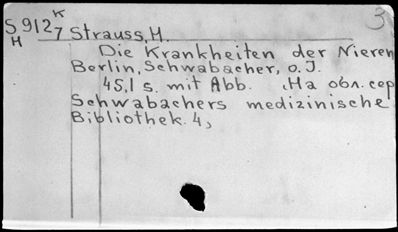 K
3
S 9127 Strauss, H.
H
Die Krankheiten der Nieren
Berlin, Schwabacher, o. J.
45,1 s. mit Abb. На обл. сер
Schwabachers medizinische
Bibliothek. 4,